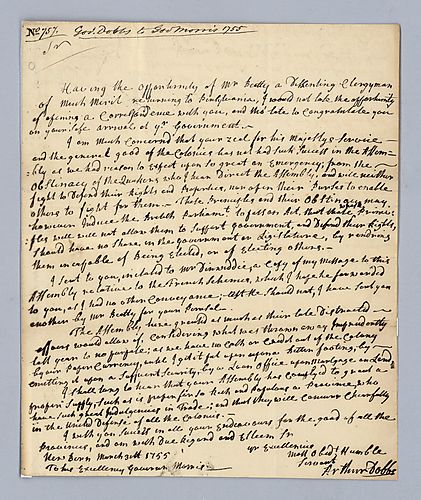 No 757. Gov. Dobbs to Gov Morris 1755
Sr
Having the Opportunity of Mr Beatty a Dissenting Clergyman
of much Merit returning to Pensilvania, I would not lose the opportunity
of opening a Correspondence with you, and tho late to Congratulate you
on your safe arrival at yr Government.
I am much Concerned that your zeal for his Majestys Service
and the general good of the Colonies has not had such Success in the Assem-
bly as we had reason to expect upon so great an Emergency; from the
Obstinacy of the Quakers who I hear Direct the Assembly, and will neither
fight to Defend their Rights and Properties, nor open their Purses to enable
others to fight for them. These Principles and their Obstinacy may
however Induce the British Parliamt to pass an Act that those whose Princi-
ples will not allow them to Support Government, and Defend their Rights,
Should have no Share in the Government or Legislature, by rendring
them incapable of Being Elected, or of Electing others.
I sent to you, inclosed to Mr Dinwiddie, a Copy of my Message to this
Assembly relative to the French Schemes, which I hope he forwarded
to you, as I had no other Conveyance; lest he should not, I have sent you
another by Mr Beatty for your Perusal.
The Assembly here granted as much as their late Distressed
affairs would allow of, Considering what was thrown away Imprudently
last year to no purpose; as we have no Cash or Credit out of the Colony
by our Paper Currency, until I get it put upon a better footing, by
emitting it upon a Sufficient Security, by a Loan Office or on Mortgage, on Land
I shall long to hear that your Assembly has Complyd to grant a
proper Supply, such as is proper for so Rich and Populous a Province, who
have such great Indulgences in Trade; and that they will Concur Chearfully
in the United Defense of all the Colonies.
I wish you Success in all your Endeavours for the good of all the
Provinces, and am with Due Regard and Esteem Sr
yr Excellencies
New Bern March 1755
Most Obedt Humble
Servant
To his Excellency Governor Morris
Arthur Dobbs